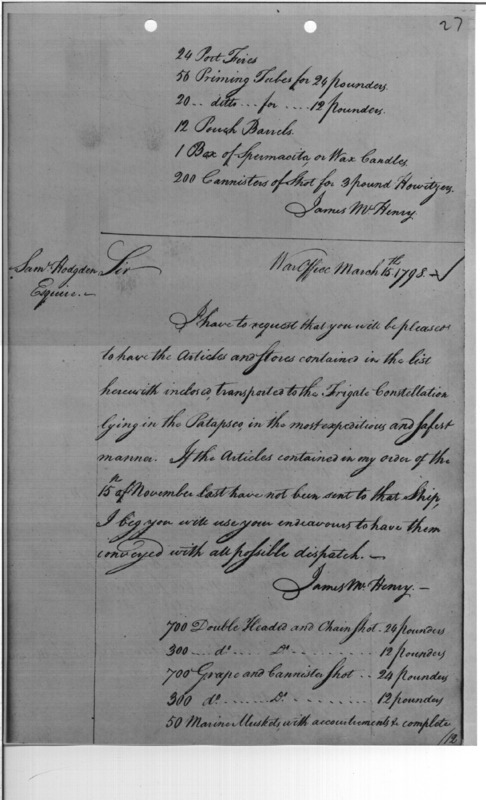 27
24 Port Fires
56 Priming Tubes for 24 pounders.
20 .. ditto ... for .... 12 pounders.
12 Pouch Barrels.
1 Box of Spermacita, or Wax Candles
200 Cannisters of Shot for 3 pound Howitzers.
James McHenry.
Saml Hodgden
Esquire.
Sir
War Office March 15th 1798.
I have to request that you will be pleased
to have the Articles and Stores contained in the list
herewith inclosed transported to the Frigate Constellation
lying in the Patapsco, in the most expeditious and safest
manner. If the Articles contained in my order of the
15th of November last have not been sent to that Ship,
I beg you will use your endeavours to have them
conveyed with all possible dispatch.
James McHenry.
700 Double Headed and Chain Shot . 24 pounders
300 ... do .... Do ......... 12 pounders
700 Grape and Cannister Shot .. 24 pounders
300 do ....... Do ........ 12 pounders
50 Marine Muskets, with accoutrements complete
/12